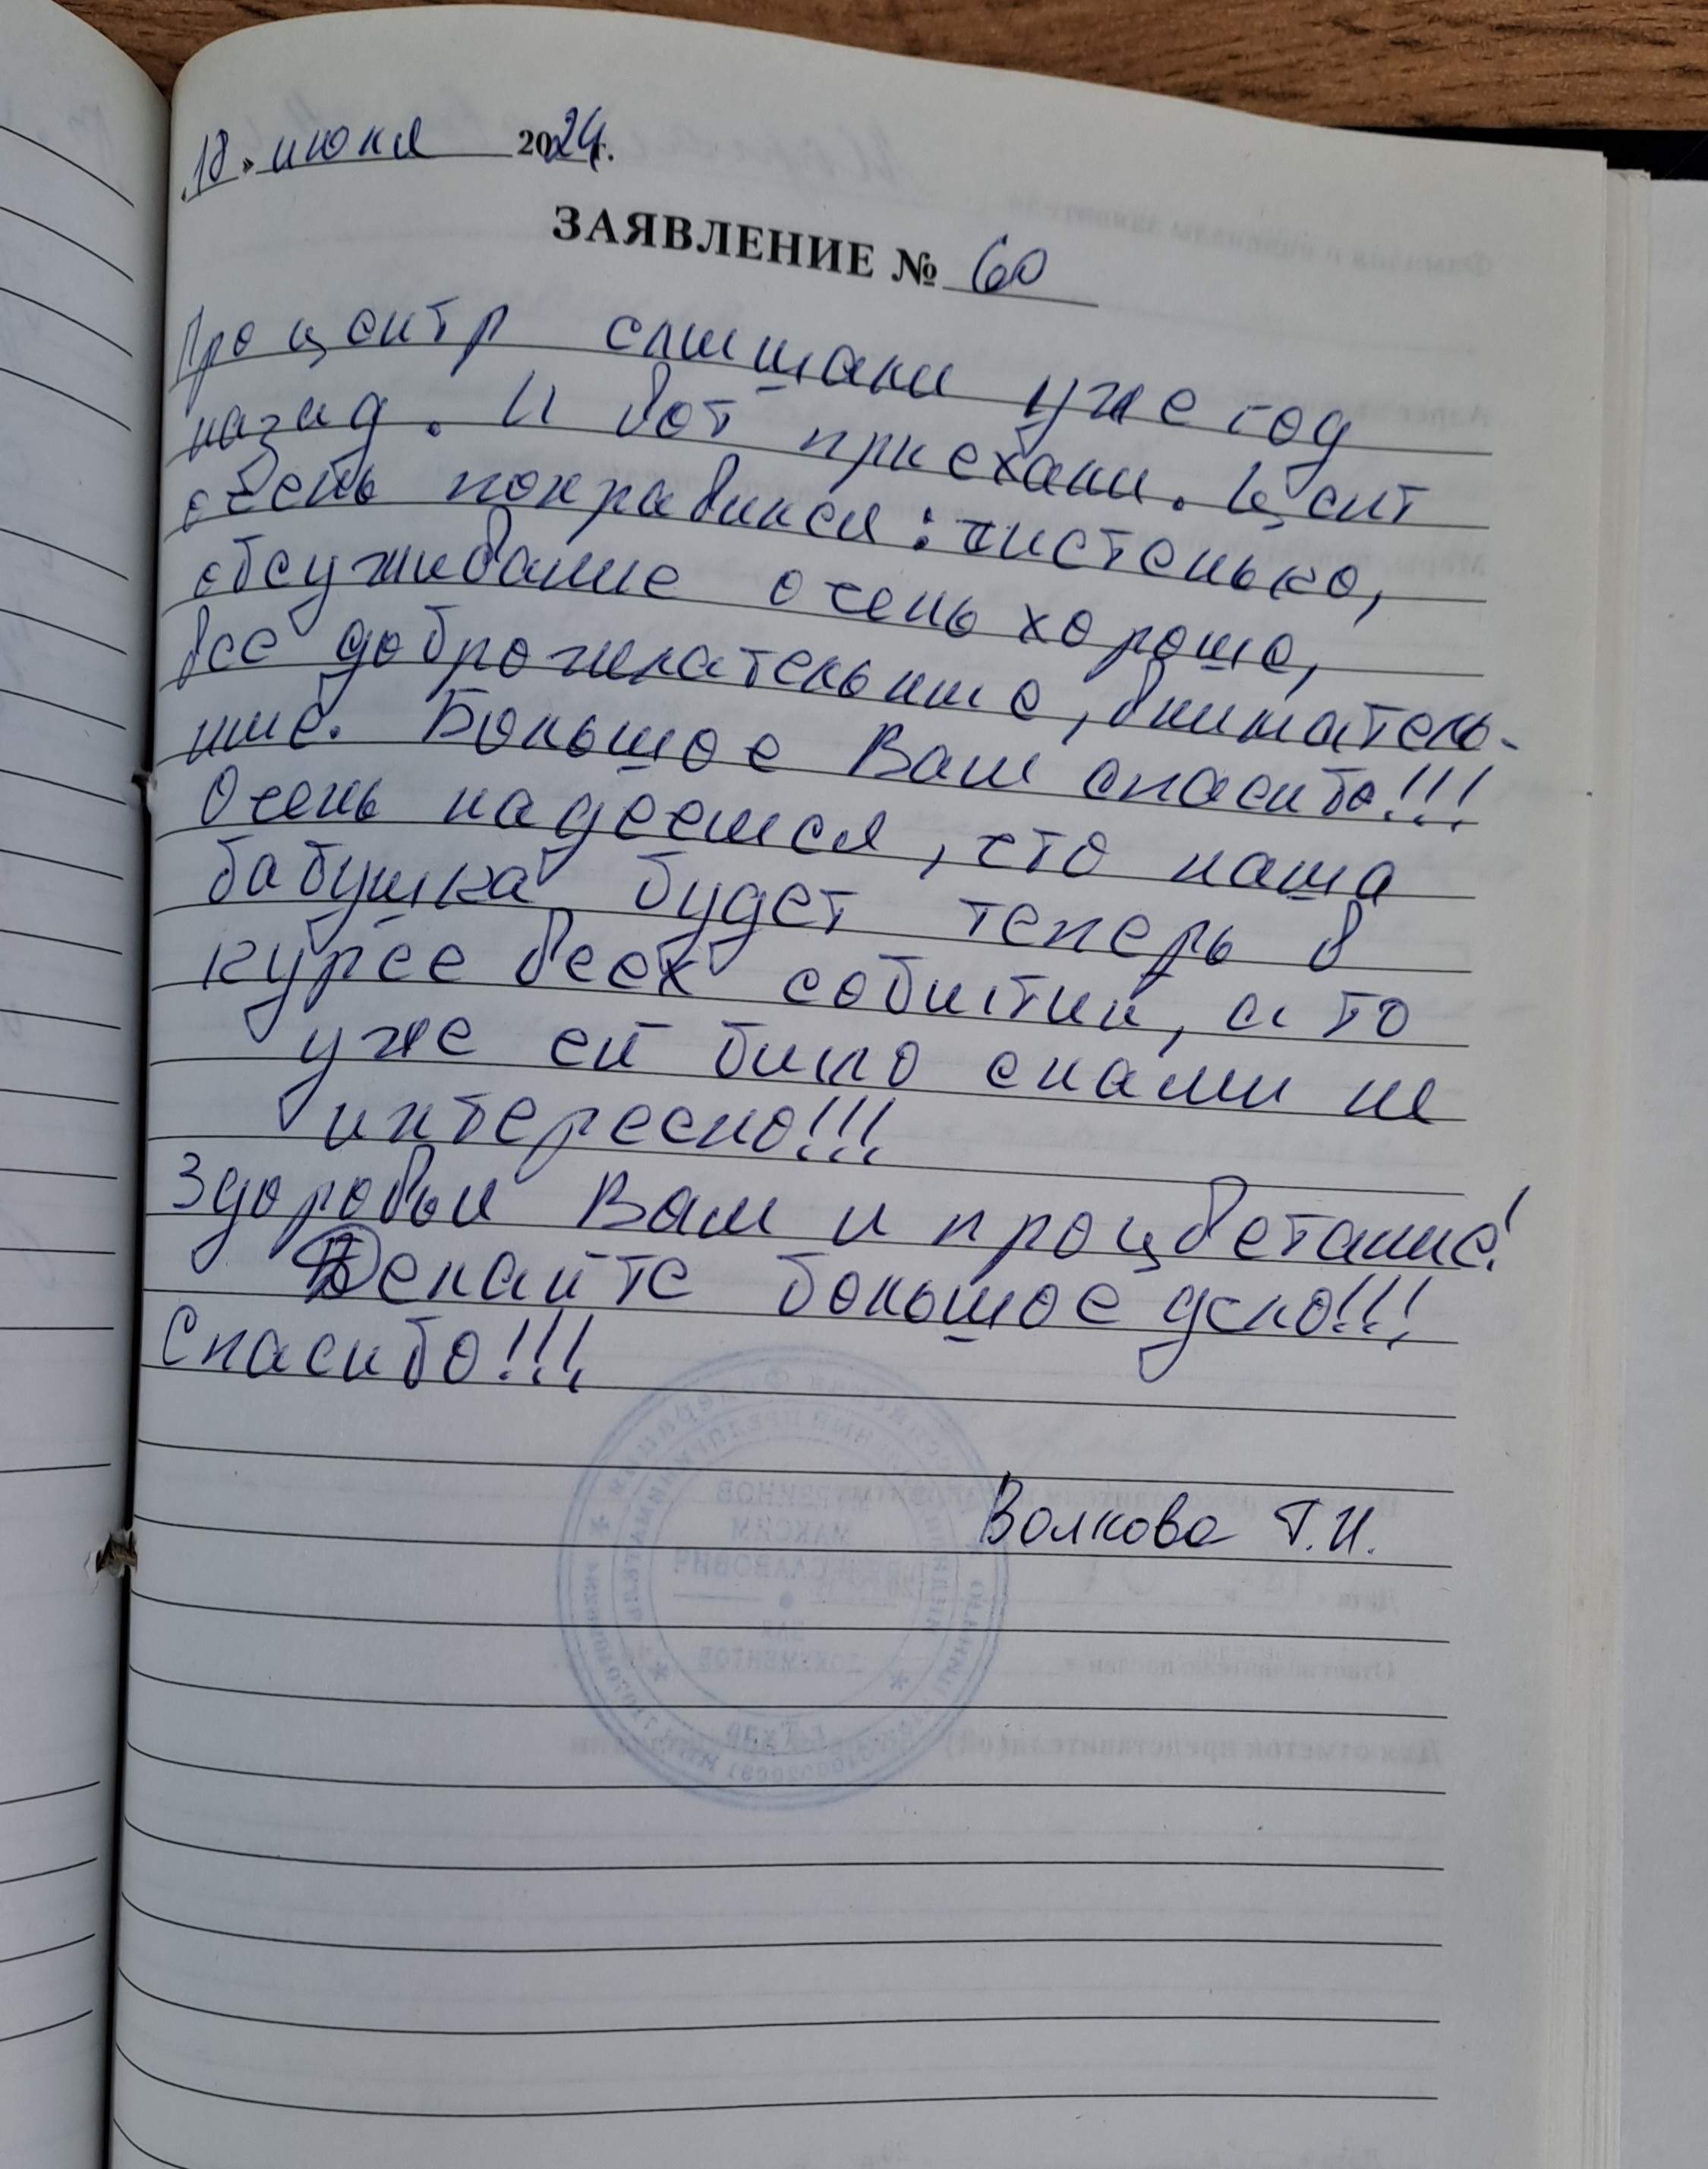 18 » июня 2024 г.
ЗАЯВЛЕНИЕ № 60
Про центр слышали уже год
назад. И вот приехали. Цент
очень понравился: чистенько,
обсуживание очень хороше,
все доброжелательные, вниматель-
ные. Большое Вам спасибо!!!
Очень надеемся, что наша
бабушка будет теперь в
курсе всех событий, а то
уже ей было снами не
интересно!!!
Здоровья Вам и процветание!
Делайте большое дело!!!
Спасибо!!!
Волкова Т.И.